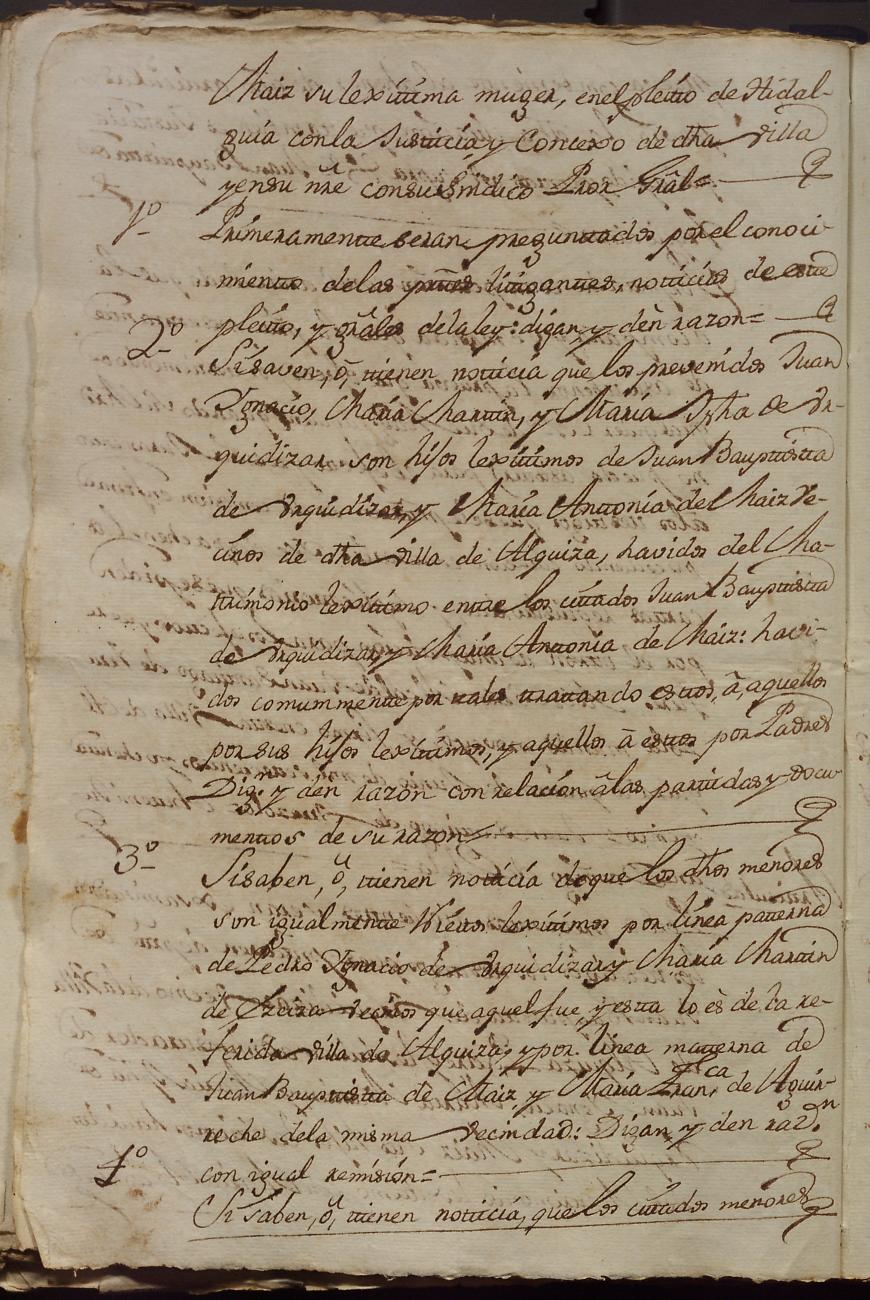 Maiz su lexittima muger, en el pleitto de Hidal-
guia con la Justticia, y Concexo de dha villa
y en su nre con su Sindico Pror Gràl=
1º Primeramente seran preguntados por el conoci-
miento de las pttes littigantes, notticias de este
pleitto, y grâles de la ley: digan, y dèn razon=
2º Si saven, ô, tienen notticia que los prevenidos Juan
Ignacio, Maria Martin, y Maria Jpha de Ur-
quidizar son hijos lexittimos de Juan Bapttista
de Urquidizar, y Maria Anttonia de Maiz ve-
cinos de dha villa de Alquiza, havidos del Ma-
trimonio lexittimo entre los cittados Juan Bapttista
de Urquidizar, y Maria Anttonia de Maiz: havi-
dos comunmente por tales trattando estos, â, aquellos
por sus hijos lexittimos, y aquellos â estos por Padres
Dign. y dèn razon con relacion â las partidas y docu-
mentos de su razon=
3º Si saben, ô, tienen notticia de que los dhos menores
son igualmente Nietos lexittimos por linea patterna
de Pedro Ygnacio de Urquidizar y Maria Martin
de vecinos que aquel fue, y esta lo ès de la re-
ferida villa de Alquiza, y por linea matterna de
Juan Bapttista de Maiz, y Maria Franca de Aguir-
reche de la misma vecindad: Digan, y den razn.
con igual remision=
4º Si saben, ô, tienen notticia, que los cittados menores